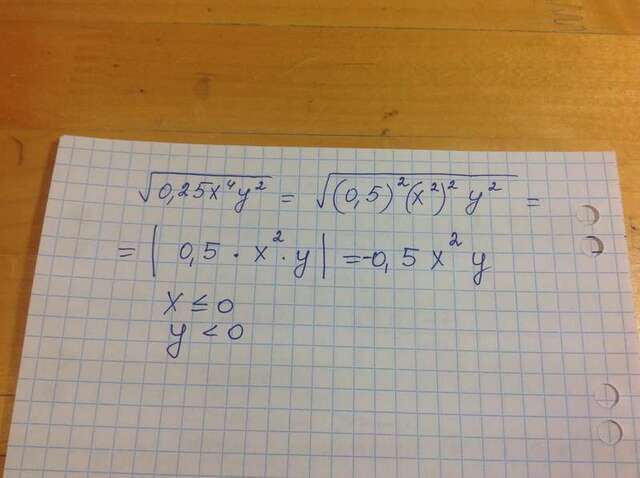 √0,25x⁴y² = √(0,5)²(x²)² y² =
= | 0,5 · x² · y | = -0,5 x² y
x ≤ 0
y < 0